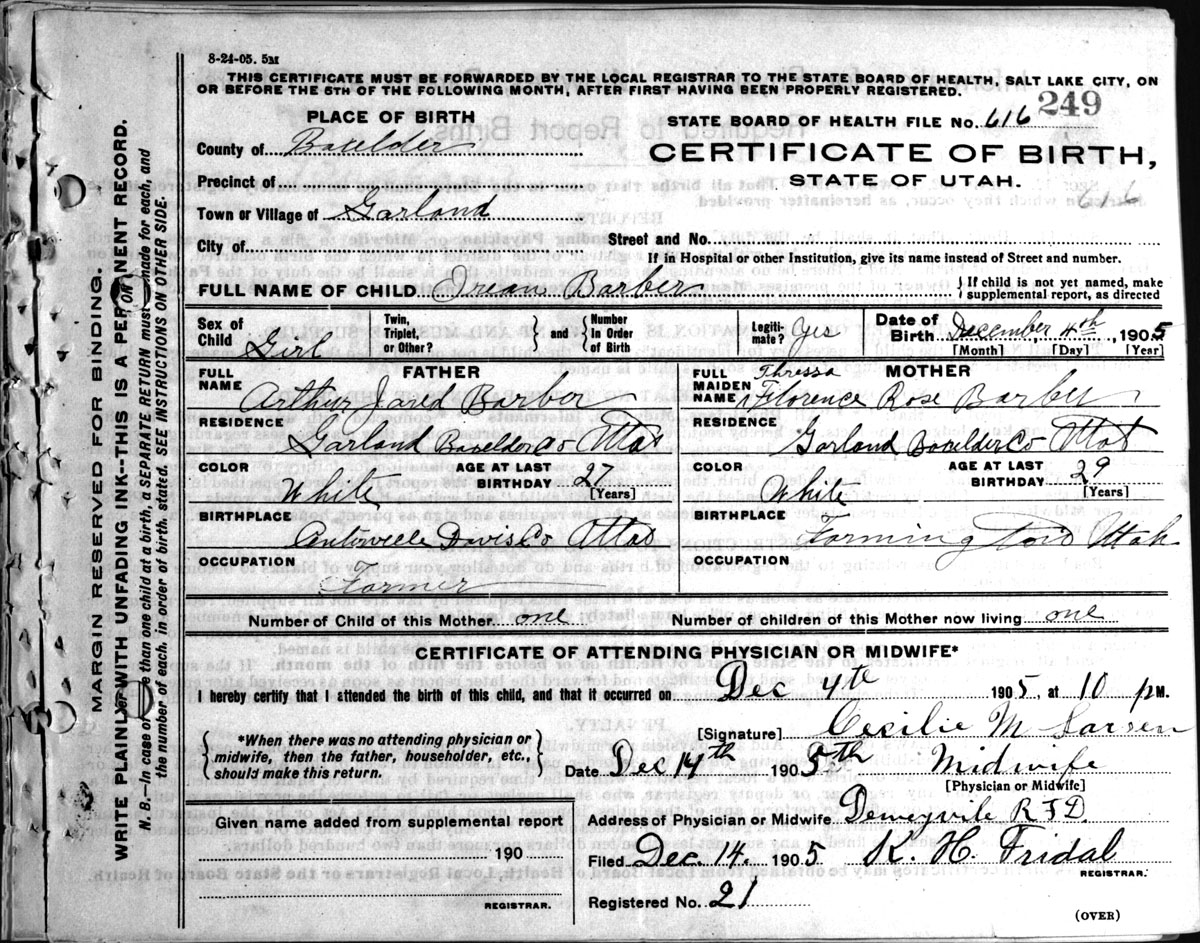 8-24-05. 5M
THIS CERTIFICATE MUST BE FORWARDED BY THE LOCAL REGISTRAR TO THE STATE BOARD OF HEALTH, SALT LAKE CITY, ON
OR BEFORE THE 5TH OF THE FOLLOWING MONTH, AFTER FIRST HAVING BEEN PROPERLY REGISTERED.
249
PLACE OF BIRTH
STATE BOARD OF HEALTH FILE No. 616
County of Boxelder
CERTIFICATE OF BIRTH,
Precinct of
STATE OF UTAH.
616
Town or Village of Garland
City of Street and No.
If in Hospital or other Institution, give its name instead of Street and number.
FULL NAME OF CHILD Orian Barber } If child is not yet named, make supplemental report, as directed
Sex of Child Girl Twin, Triplet, or Other? } and { Number In Order of Birth Legiti-mate? Yes Date of Birth December 4th, 1905
[Month] [Day] [Year]
FULL NAME FATHER Arthur Jared Barber
FULL MAIDEN NAME MOTHER Thressa Florence Rose Barber
RESIDENCE Garland Boxelder Co Uttat
RESIDENCE Garland Boxelder Co Uttat
COLOR White AGE AT LAST BIRTHDAY 27 [Years]
COLOR White AGE AT LAST BIRTHDAY 29 [Years]
BIRTHPLACE Davis Co Uttat
BIRTHPLACE Farming Utah
OCCUPATION Farmer
OCCUPATION
Number of Child of this Mother one Number of children of this Mother now living one
CERTIFICATE OF ATTENDING PHYSICIAN OR MIDWIFE*
I hereby certify that I attended the birth of this child, and that it occurred on Dec 4th 1905, at 10 PM.
{ *When there was no attending physician or midwife, then the father, householder, etc., should make this return. }
[Signature] Cecilie M Larsen
Date Dec 14th 1905th Midwife
[Physician or Midwife]
Given name added from supplemental report
Address of Physician or Midwife Deweyvile R F D.
190
Filed Dec. 14. 1905 K. H. Fridal
REGISTRAR.
REGISTRAR.
Registered No. 21
(OVER)
MARGIN RESERVED FOR BINDING.
WRITE PLAINLY WITH UNFADING INK--THIS IS A PERMANENT RECORD.
N. B.--In case of more than one child at a birth, a SEPARATE RETURN must be made for each, and
the number of each, in order of birth, stated. SEE INSTRUCTIONS ON OTHER SIDE.